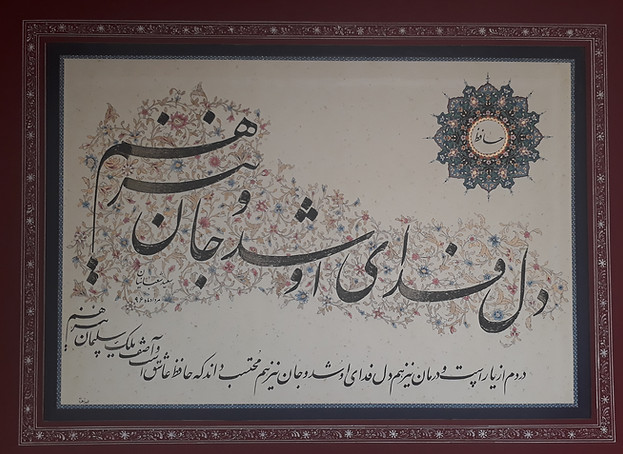 حافظ
دل فدای او شد و جان نیز هم
دردم از یار است و درمان نیز هم دل فدای او شد و جان نیز هم محتسب داند که حافظ عاشق است
و آصف ملک سلیمان نیز هم
مرداد ماه ۹۶